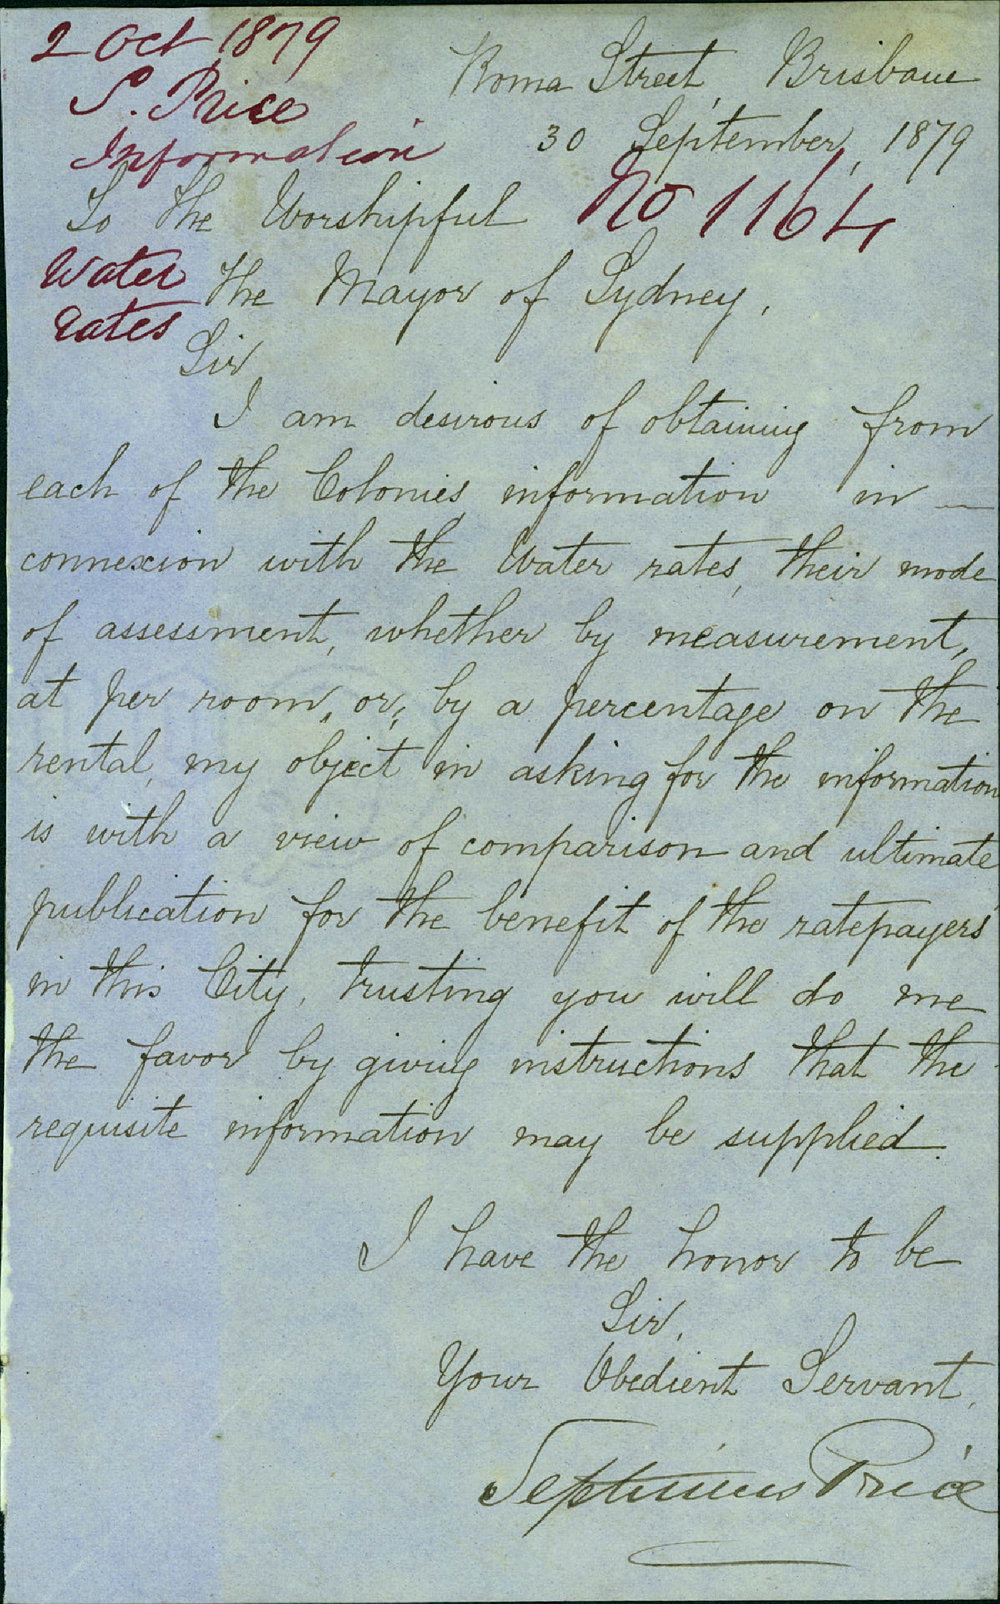 2 Oct 1879
S. Price
Information
Roma Street, Brisbane
30 September, 1879
To the Worshipful
No 1164
Water
rates
the Mayor of Sydney,
Sir,
I am desirous of obtaining from
each of the Colonies, information in —
connexion with the Water rates, their mode
of assessment, whether by measurement,
at per room, or, by a percentage on the
rental, my object in asking for the information
is with a view of comparison and ultimate
publication for the benefit of the ratepayers
in this City, trusting you will do me
the favor by giving instructions that the
requisite information may be supplied.
I have the honor to be
Sir,
Your Obedient Servant,
Septimus Price